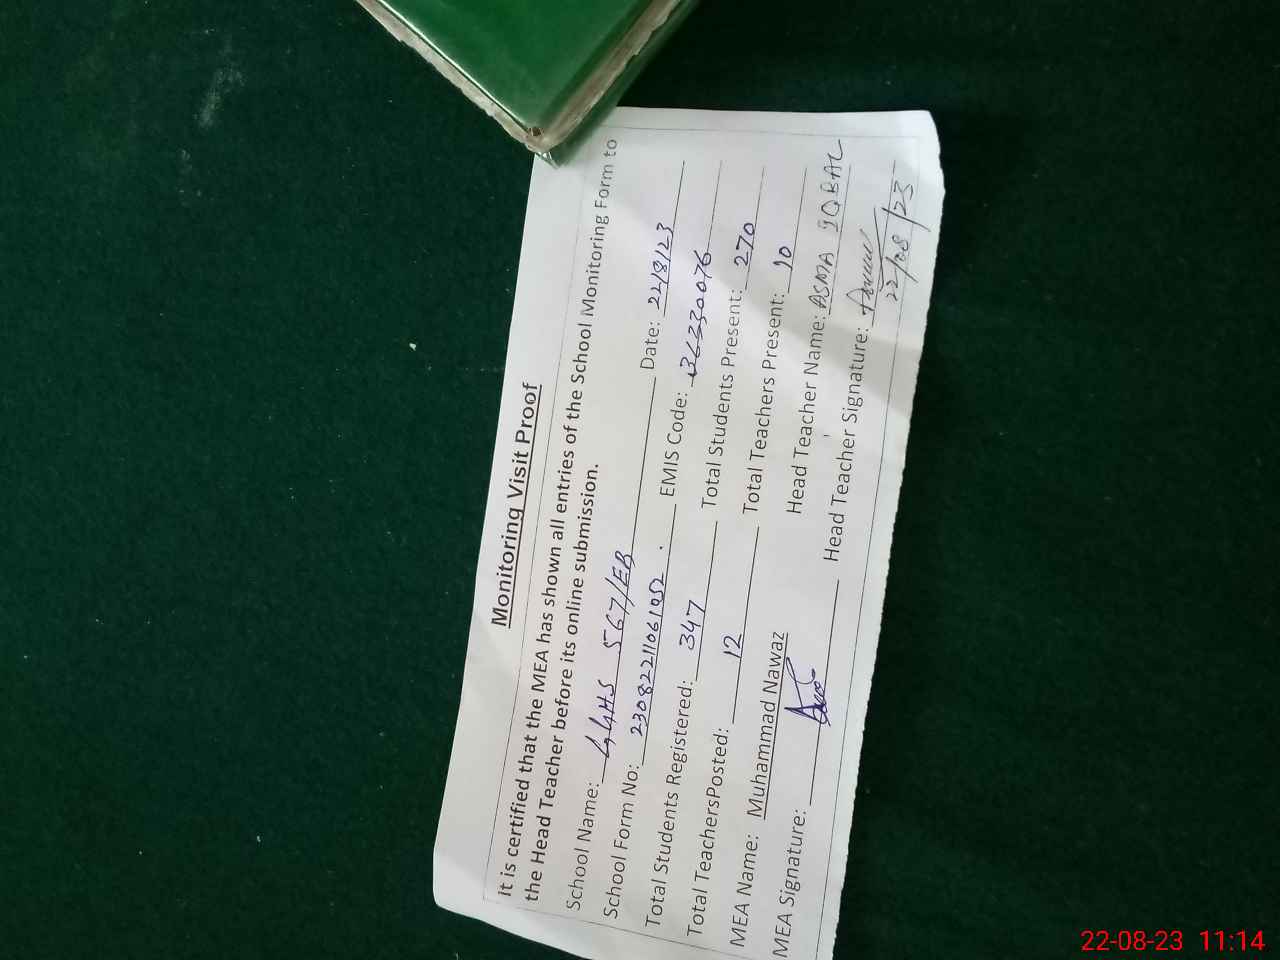 Monitoring Visit Proof
It is certified that the MEA has shown all entries of the School Monitoring Form to
the Head Teacher before its online submission.
School Name: GGHS 567/EB Date: 22/8/23
School Form No: 23082211061052. EMIS Code: 36230076
Total Students Registered: 347 Total Students Present: 270
Total TeachersPosted: 12 Total Teachers Present: 10
MEA Name: Muhammad Nawaz Head Teacher Name: ASMA IQBAL
MEA Signature: Head Teacher Signature:
22/08/23
22-08-23 11:14